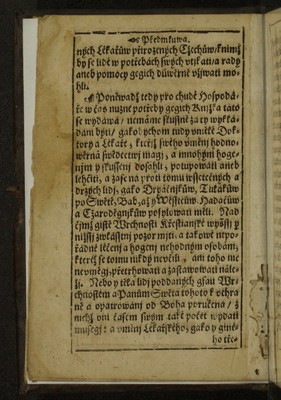 Předmluwa.
ných Lékařůw přirozených Czechůw/ k nimž
by se lidé w potřebách swých utjkati/ a rady
aneb pomocy gegich důwěrně vžjwati mo-
hli.
Poněwadž tedy pro chudé Hospodá-
ře w čas nuzné potřeby gegich Knjžka tato
se wydáwá/ nemáme slussně za ty wykládá-
dáni býti/ gako bychom nidy vmělé Dok-
tory a Lékaře, kteřjž swého vměnj hodno-
wěrná swědectwj magj, a mnohým hoge-
njm y skussenj dosáhli, potupowati aneb
lehčiti, a zase na proti tomu wssetečných a
drzých lidj, gako Dryáčnjkůw, Tulákůw
po Swětě, Bab, až y Wěsstcůw Hadačůw
a Czarodegnjkůw posylowati měli. Nad
čjmž gisté Wrchnosti Křestianské wyžssj y
nižssj zwlásstnj pozor mjti, a takowé nepo-
řádné léčenj a hogenj nehodným osobám,
kteréž se tomu nikdy neučili, am toho ne
neumělgj, přetrhowati a zastawowati nále-
žj. Nebo y těla lidj poddaných gsau Wr-
chnostem a Pánům Swěta tohoto k ochra
ně a opatrowánj od Boha poručena/ z
nichž oni časem swým také počet wydati
musegj: a vměnj Lékařského, gako y giné-
ho ře-